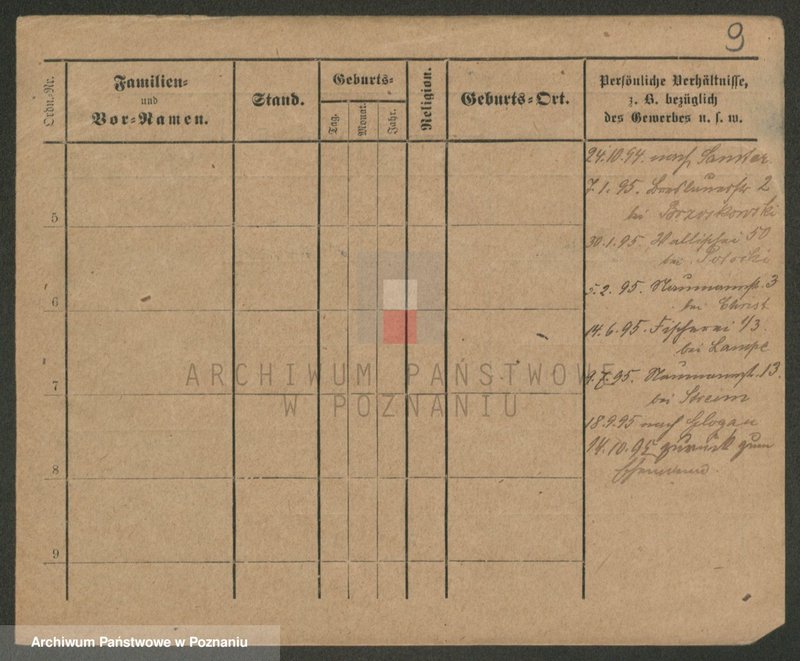 9
Ordn.-Nr.
Familien-
und
Vor-Namen.
Stand.
Geburts-
Tag.
Monat.
Jahr.
Religion.
Geburts-Ort.
Persönliche Verhältnisse,
z. B. bezüglich
des Gewerbes u. s. w.
24.10.94. nach Samter
7.1.95. Breslauerstr 2
bei Brzoskowski
30.1.95. Wallischei 50
bei Potocki
5.2.95. Naumannstr. 3
bei Christ
14.6.95. Fischerei 1/3.
bei Lampe
9.7.95. Naumannstr. 13.
bei Streim
18.9.95 nach Glogau
14.10.95 zurück zum
5
6
7
8
9
ARCHIWUM PAŃSTWOWE
W POZNANIU
Archiwum Państwowe w Poznaniu